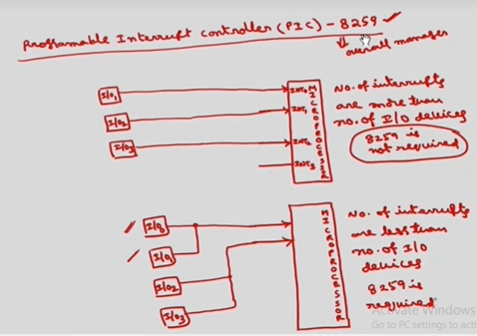 Programable Interrupt controller (PIC) - 8259
overall manager
I/O1
I/O2
I/O3
INT0
INT1
INT2
INT3
MICROPROCESSOR
No. of interrupts
are more than
no. of I/O devices
8259 is
not required
I/O0
I/O1
I/O2
I/O3
MICROPROCESSOR
No. of interrupts
are less than
no. of I/O
devices
8259 is
required
Activate Windows
Go to PC settings to acti